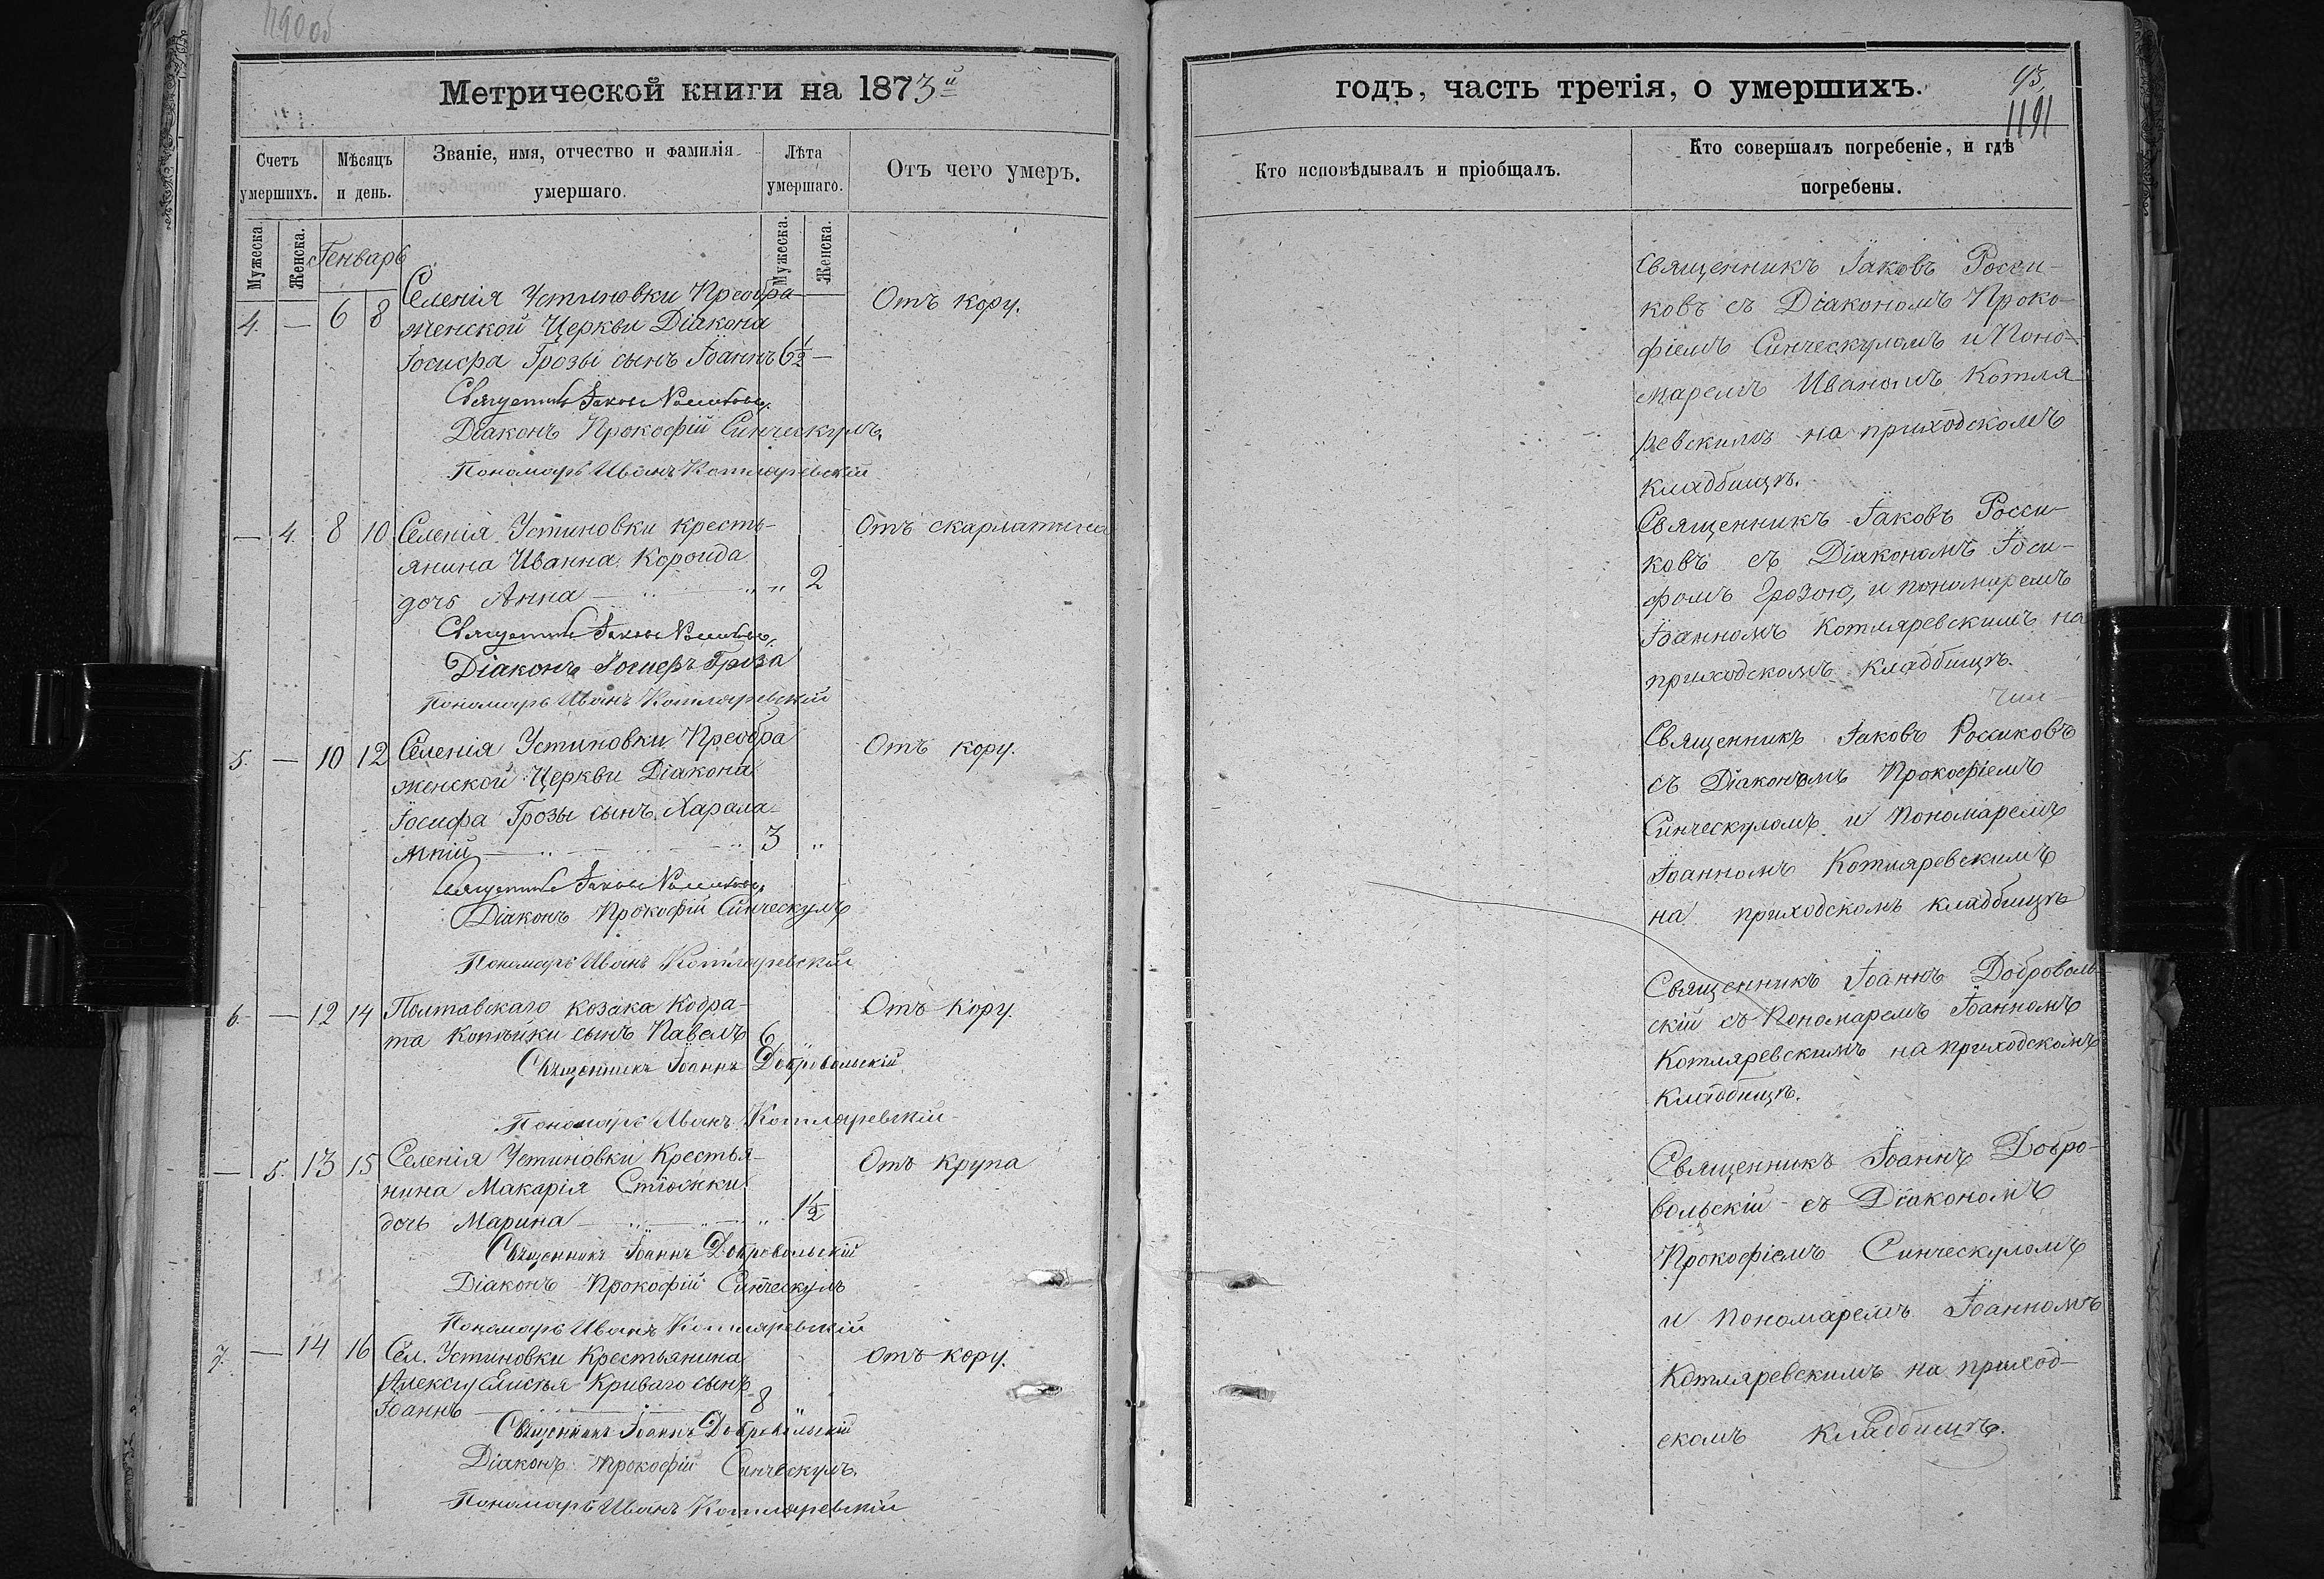 Метрической книги на 1873й
Счетъ умершихъ.
Мѣсяцъ и день.
Званіе, имя, отчество и фамилія умершаго.
Лѣта умершаго.
Отъ чего умеръ.
Мужеска.
Женска.
Генварь
Мужеска.
Женска.
4. — 6 8 Селенія Устиновки Преобра- Отъ кору.
женской Церкви Діакона
Іосифа Грозы сынъ Іоаннъ 6½ —
Священникъ Іаковъ Россиковъ
Діаконъ Прокофій Синческулъ.
Пономарь Иванъ Котляревскій
— 4. 8 10 Селенія Устиновки кресть- Отъ скарлатины
янина Иванна Короида
дочь Анна — „ 2
Священникъ Іаковъ Россиковъ
Діаконъ Іосифъ Гроза
Пономарь Иванъ Котляревскій
5. — 10 12 Селенія Устиновки Преобра Отъ кору.
женской Церкви Діакона
Іосифа Грозы сынъ Харала-
мпій — 3 „
Священникъ Іаковъ Россиковъ
Діаконъ Прокофій Синческулъ
Пономарь Иванъ Котляревскій
6. — 12 14 Полтавскаго козака Кодра- Отъ кору.
та Копѣйки сынъ Павелъ 6
Священникъ Іоаннъ Добровольскій
Пономарь Иванъ Котляревскій
— 5. 13 15 Селенія Устиновки Крестья- Отъ крупа
нина Макарія
дочь Марина — „ 1½
Священникъ Іоаннъ Добровольскій
Діаконъ Прокофій Синческулъ
Пономарь Иванъ Котляревскій
7. — 14 16 Сел. Устиновки Крестьянина Отъ кору.
Криваго сынъ
Іоаннъ — 8 „
Священникъ Іоаннъ Добровольскій
Діаконъ Прокофій Синческулъ.
Пономарь Иванъ Котляревскій
годъ, часть третія, о умершихъ.
93,
1191
Кто исповѣдывалъ и пріобщалъ.
Кто совершалъ погребеніе, и гдѣ погребены.
Священникъ Іаковъ Росси-
ковъ съ Діакономъ Проко-
фіемъ Синческуломъ и Поно-
маремъ Иваномъ Котля-
ревскимъ на приходскомъ
кладбищѣ.
Священникъ Іаковъ Росси-
ковъ съ Діакономъ Іоси-
фомъ Грозою, и пономаремъ
Іоанномъ Котляревскимъ на
приходскомъ кладбищѣ.
Священникъ Іаковъ Россиковъ
съ Діакономъ Прокофіемъ
Синческуломъ и Пономаремъ
Іоанномъ Котляревскимъ
на приходскомъ кладбищѣ
Священникъ Іоаннъ Доброволь-
скій съ Пономаремъ Іоанномъ
Котляревскимъ на приходскомъ
кладбищѣ.
Священникъ Іоаннъ Добро-
вольскій съ Діакономъ
Прокофіемъ Синческуломъ
и Пономаремъ Іоанномъ
Котляревскимъ на приход-
скомъ кладбищѣ.